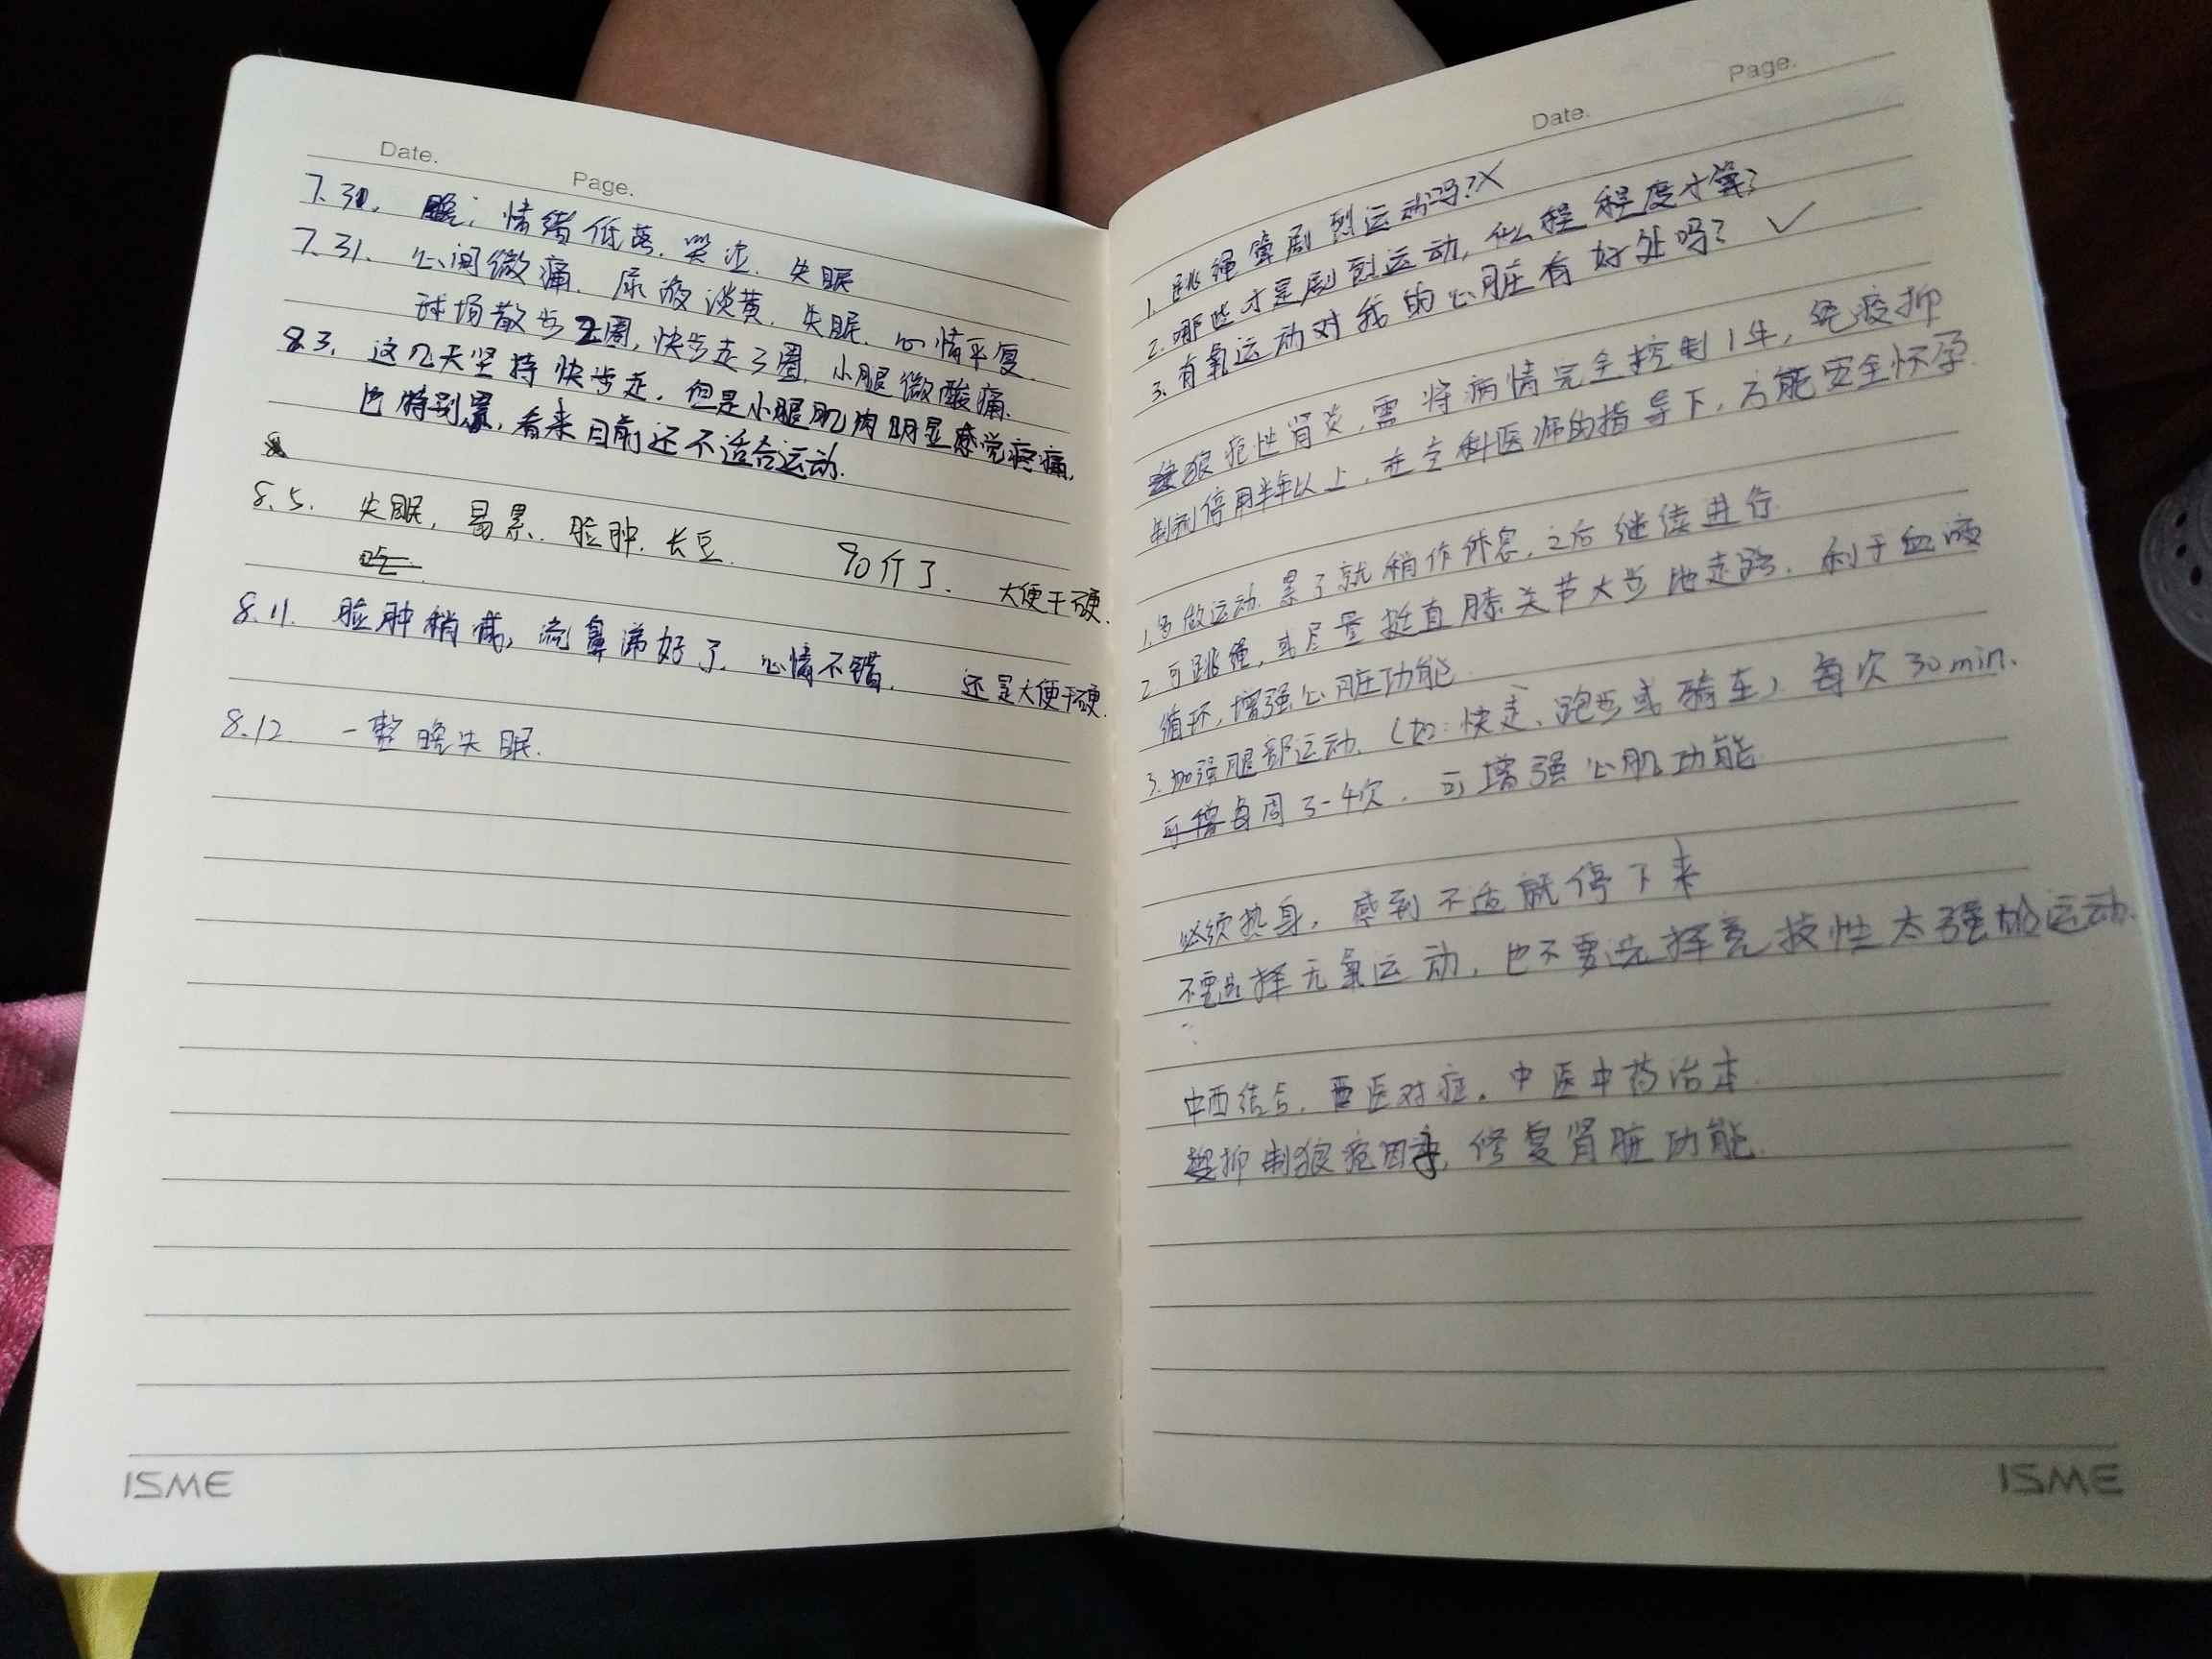 Date.
Page.
7.30. 晚: 情绪低落. 哭泣. 失眠
7.31. 心间微痛. 尿液淡黄. 失眠. 心情平复.
球场散步2圈, 快步走3圈. 小腿微酸痛.
8.3. 这几天坚持快步走. 但是小腿肌肉明显感觉疼痛,
也特别累, 看来目前还不适合运动.
8.5. 失眠, 易累. 脸肿. 长豆. 90斤了. 大便干硬.
8.11. 脸肿稍减, 流鼻涕好了. 心情不错. 还是大便干硬.
8.12 一整晚失眠.
ISME
Date.
Page.
1. 跳绳算剧烈运动吗? X
2. 哪些才是剧烈运动, 什么程程度才算?
3. 有氧运动对我的心脏有好处吗? ✓
狼疮性肾炎, 需将病情完全控制1年, 免疫抑
制剂停用半年以上, 在专科医师的指导下, 方能安全怀孕.
1. 多做运动. 累了就稍作休息, 之后继续进行
2. 可跳绳, 或尽量挺直膝关节大步地走路. 利于血液
循环, 增强心脏功能.
3. 加强腿部运动. (如: 快走、跑步或骑车) 每次30min.
每周3-4次. 可增强心肌功能
必须热身, 感到不适就停下来
不要选择无氧运动, 也不要选择竞技性太强的运动.
中西结合. 西医对症. 中医中药治本.
抑制狼疮因子, 修复肾脏功能.
ISME